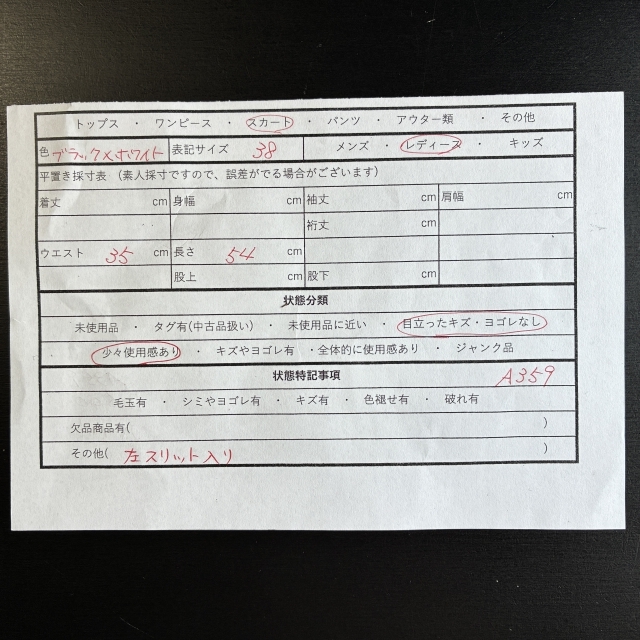 トップス ・ ワンピース ・ スカート ・ パンツ ・ アウター類 ・ その他
色 ブラック×ホワイト 表記サイズ 38 メンズ ・ レディース ・ キッズ
平置き採寸表 (素人採寸ですので、誤差がでる場合がございます)
着丈 cm 身幅 cm 袖丈 cm 肩幅 cm
裄丈 cm
ウエスト 35 cm 長さ 54 cm
股上 cm 股下 cm
状態分類
未使用品 ・ タグ有(中古品扱い) ・ 未使用品に近い ・ 目立ったキズ・ヨゴレなし
少々使用感あり ・ キズやヨゴレ有 ・全体的に使用感あり ・ ジャンク品
状態特記事項 A359
毛玉有 ・ シミやヨゴレ有 ・ キズ有 ・ 色褪せ有 ・ 破れ有
欠品商品有( )
その他( 左スリット入り )